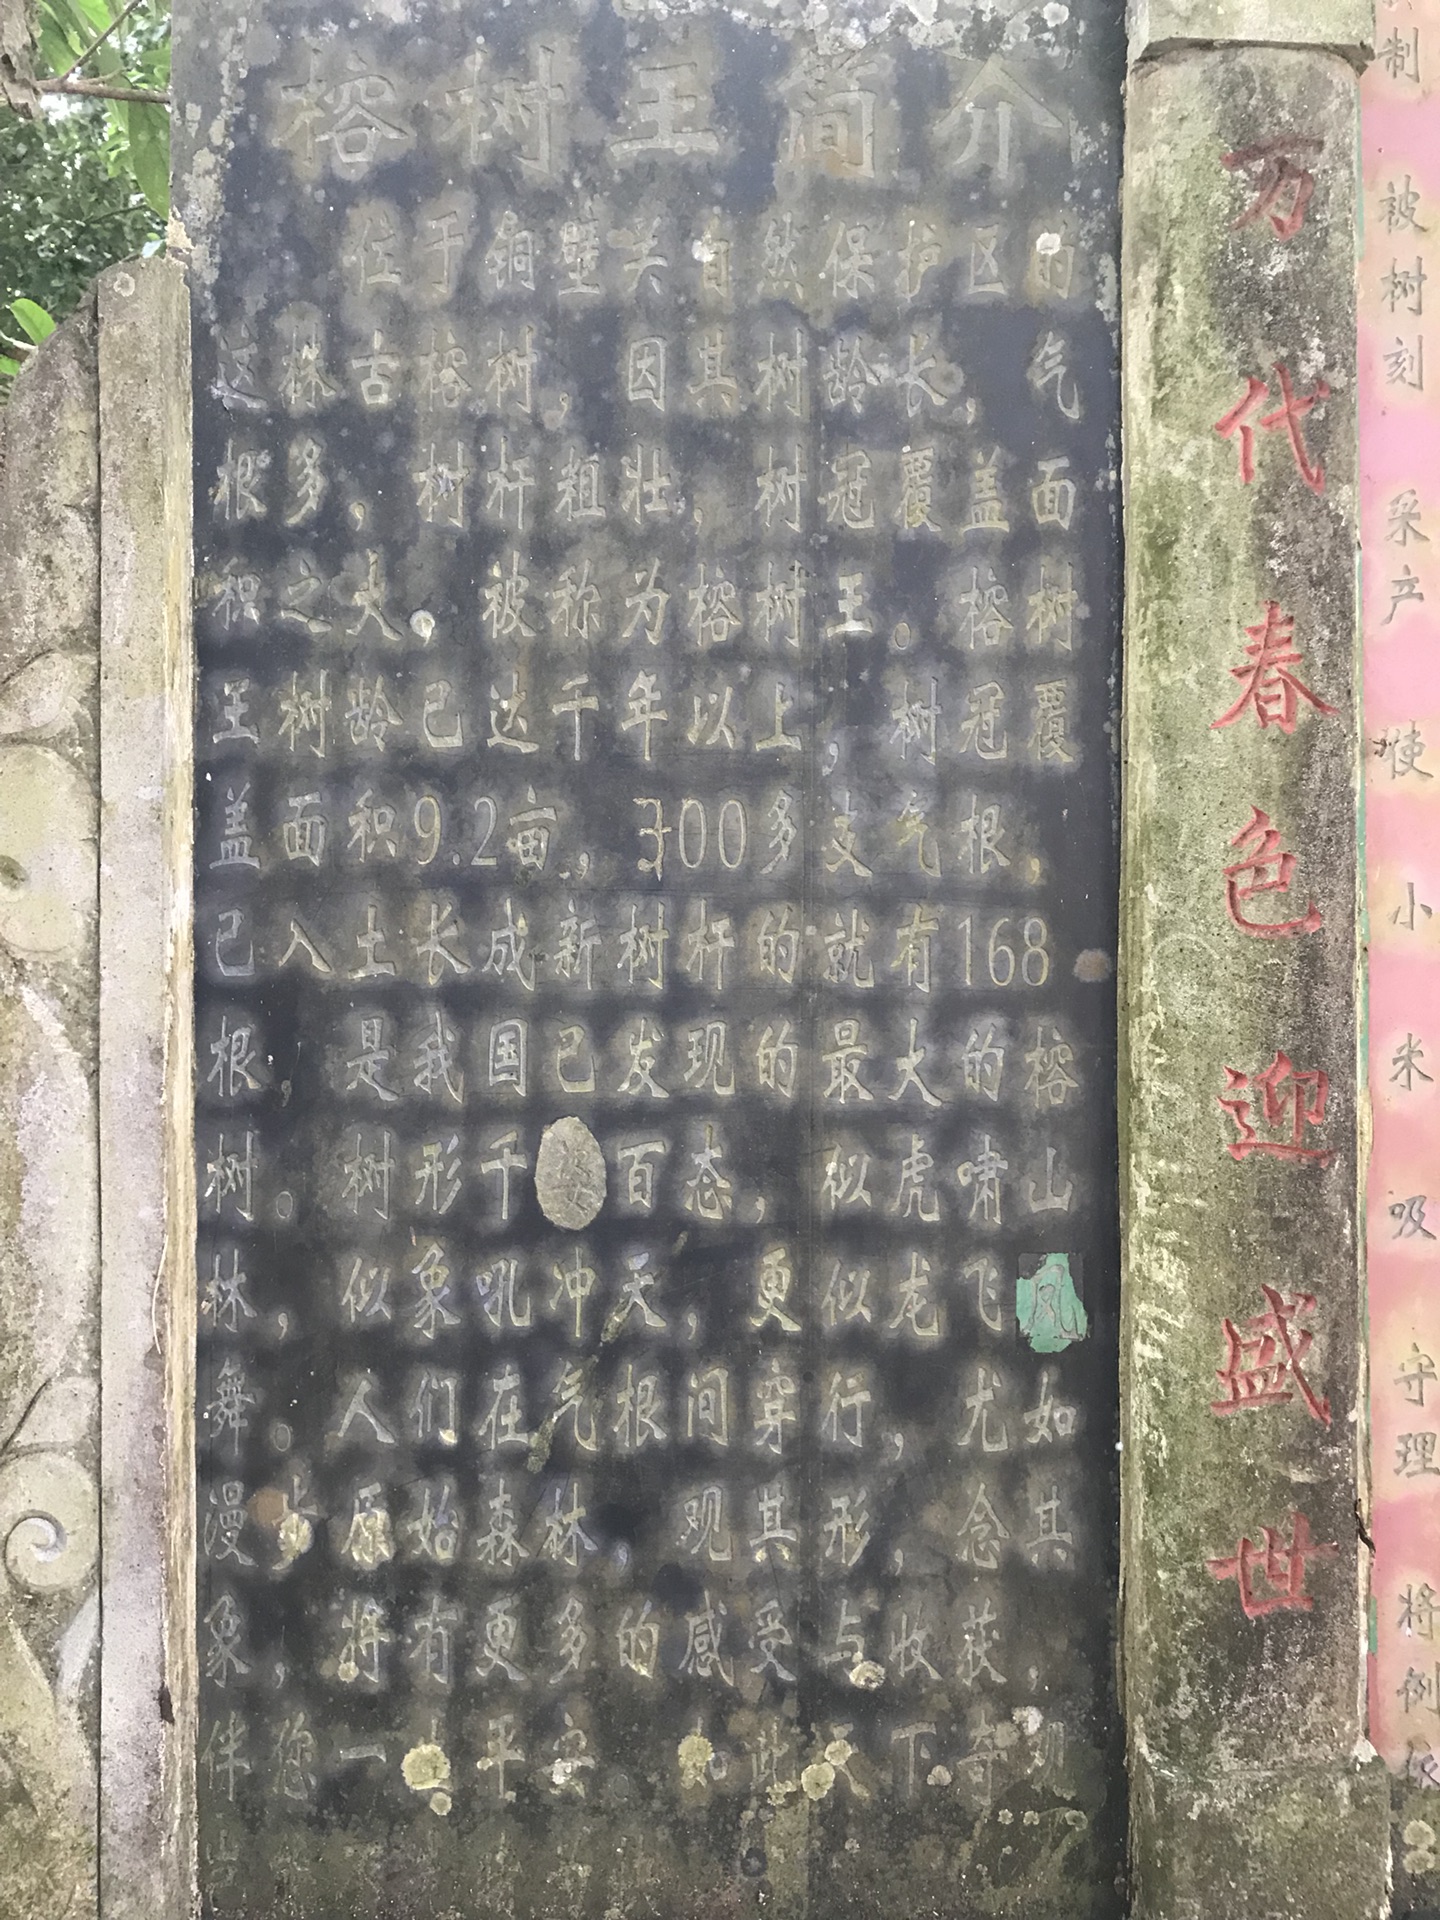 榕树王简介
位于铜壁关自然保护区的
这株古榕树，因其树龄长，气
根多，树杆粗壮，树冠覆盖面
积之大。被称为榕树王。榕树
王树龄已达千年以上，树冠覆
盖面积9.2亩，300多支气根，
已入土长成新树杆的就有168
根，是我国已发现的最大的榕
树。树形千姿百态，似虎啸山
林，似象吼冲天，更似龙飞凤
舞。人们在气根间穿行，尤如
漫步原始森林，观其形，念其
象，将有更多的感受与收获，
伴您一生平安。如此天下奇观
万代春色迎盛世
制
被树刻
采产
使
小
米
吸
守理
将例